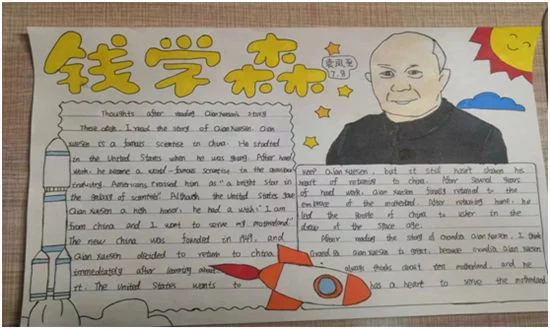 钱学森
7.8
Thoughts after reading Qian Xuesen's story
These days, I read the story of Qian Xuesen. Qian
Xuesen is a famous scientist in China. He studied
in the United States when he was young. After hard
work, he became a world-famous scientist in the
industry. Americans praised him as "a bright star in
the galaxy of scientists". Although the United States gave
Qian Xuesen a high honor, he had a wish: "I am
from China and I want to serve my motherland."
The new China was founded in 1949, and
Qian Xuesen decided to return to China
immediately after learning about
it. The United States wants to
keep Qian Xuesen, but it still hasn't
heart of returning to China. After several years
of hard work, Qian Xuesen finally returned to the
embrace of the motherland. After returning home, he
led the people of China to usher in the
dawn of the space age.
After reading the story of Grandpa Qian Xuesen, I think
Grandpa Qian Xuesen is great, because Grandpa Qian Xuesen
always thinks about the motherland, and he
has a heart to serve the motherland.